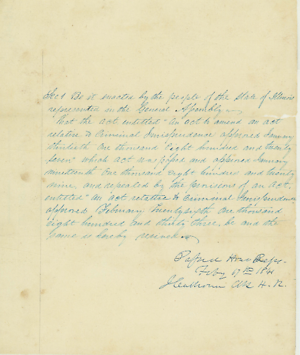 Sec 1 Be it enacted by the people of the state of Illinois
represented in the General Assembly
That the act entitled "An act to amend an act
relative to Criminal Jurisprudence approved January
thirtieth One thousand Eight hundred and twenty
seven which act
One thousand eight hundred and twenty
nine, and repealed by the provisions of an Act,
entitled "An act relative to Criminal Jurisprudence
approved February Twenty sixth One thousand
eight hundred and thirty three, be and the
same is hereby
Passed
Feby